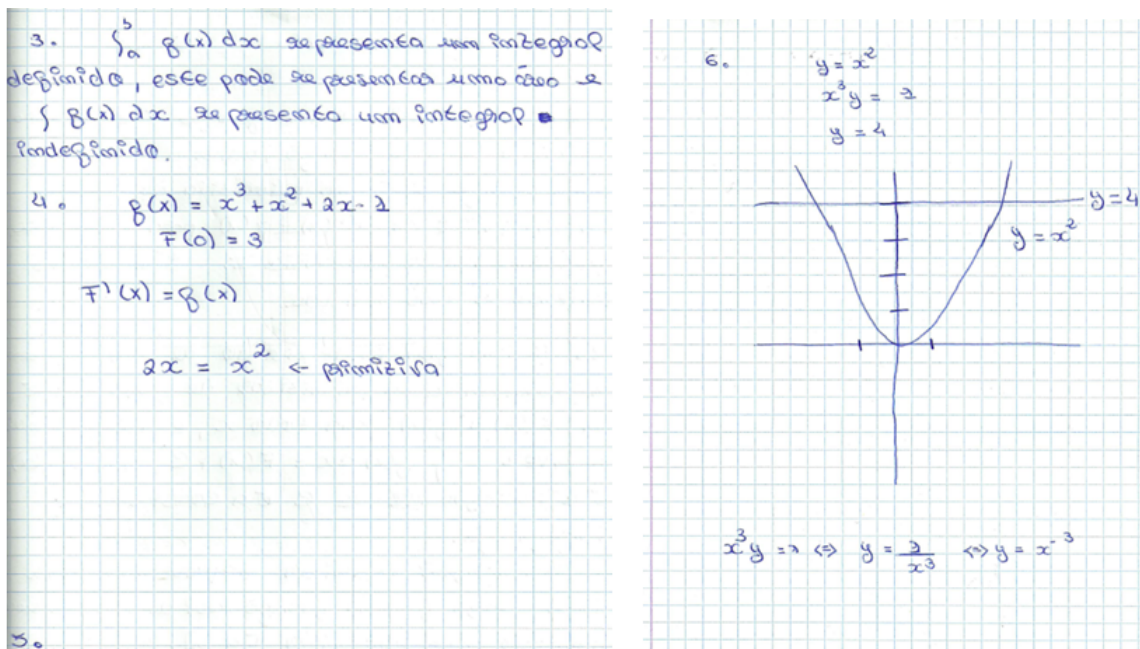 3. ∫ₐᵇ f(x) dx representa um integral
definido, este pode representar uma área e
∫ f(x) dx representa um integral
indefinido.
4. f(x) = x³ + x² + 2x - 1
F(0) = 3
F'(x) = f(x)
2x = x² ← primitiva
5.
6. y = x²
x³y = 1
y = 4
y = 4
y = x²
x³y = 1 ⇔ y = 1/x³ ⇔ y = x⁻³